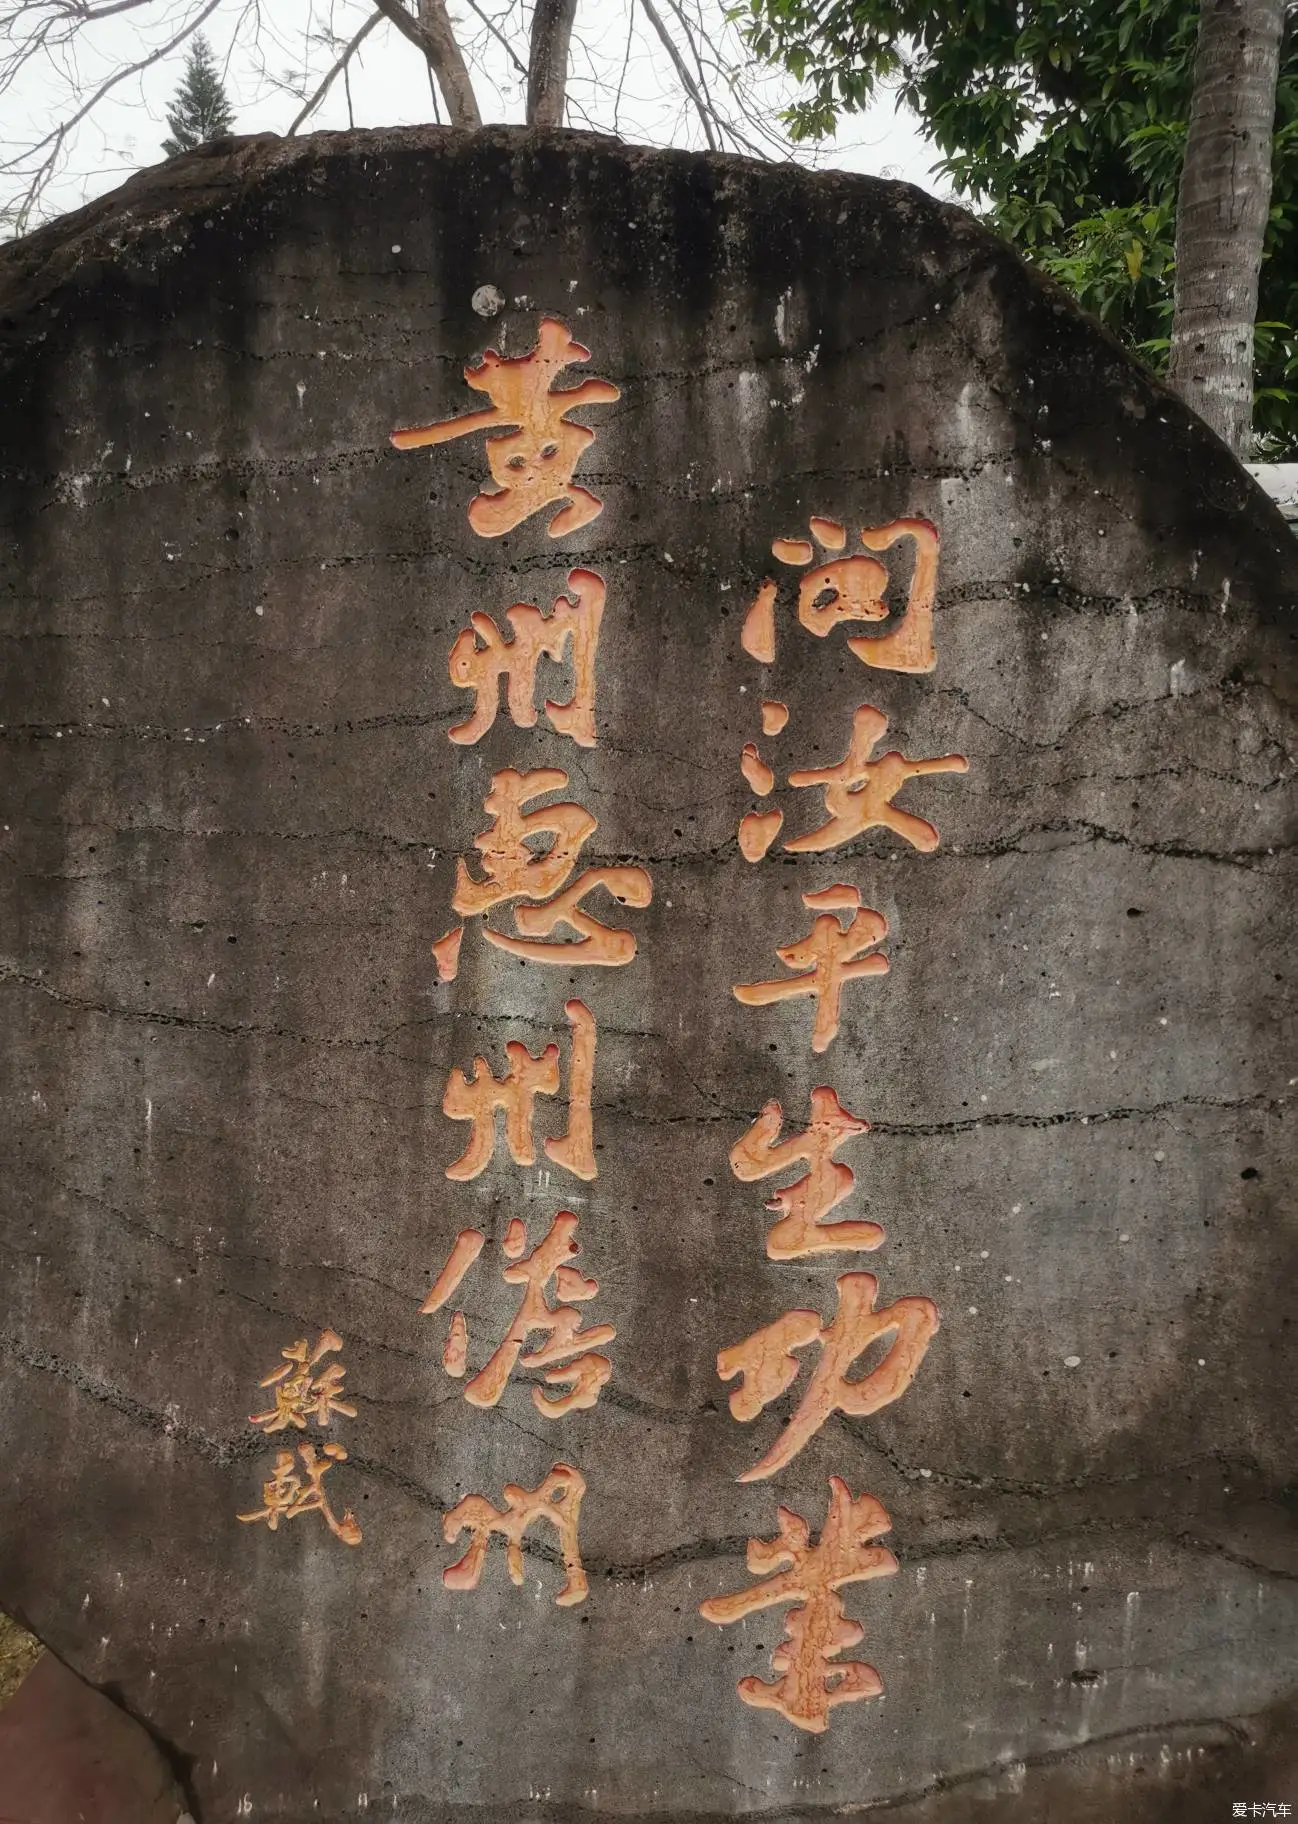 问汝平生功业
黄州惠州儋州
蘇軾
爱卡汽车